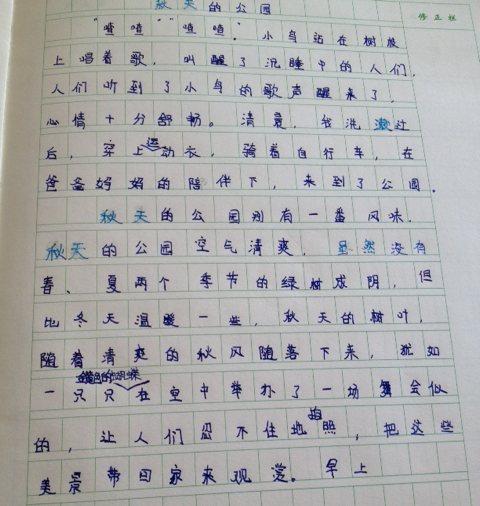 秋天的公园
修正栏
"喳喳""喳喳". 小鸟站在树枝
上唱着歌, 叫醒了沉睡中的人们,
人们听到了小鸟的歌声醒来了,
心情十分舒畅。清晨, 我洗漱过
后, 穿上运动衣, 骑着自行车, 在
爸爸妈妈的陪伴下, 来到了公园。
秋天的公园别有一番风味.
秋天的公园空气清爽, 虽然没有
春、夏两个季节的绿树成阴, 但
比冬天温暖一些, 秋天的树叶,
随着清爽的秋风随落下来, 犹如
一只只金黄色的蝴蝶在空中举办了一场舞会似
的, 让人们忍不住地拍照, 把这些
美景带回家来观赏。早上